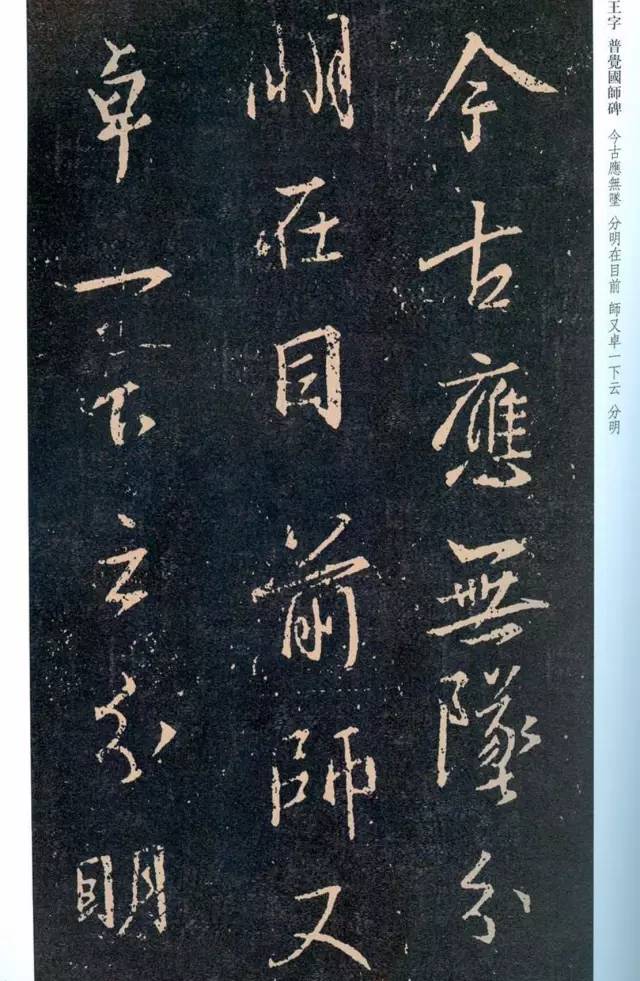 王字 普覺國師碑 今古應無墜 分明在目前 師又卓一下云 分明
今古應無墜分
明在目前師又
卓一下云分明